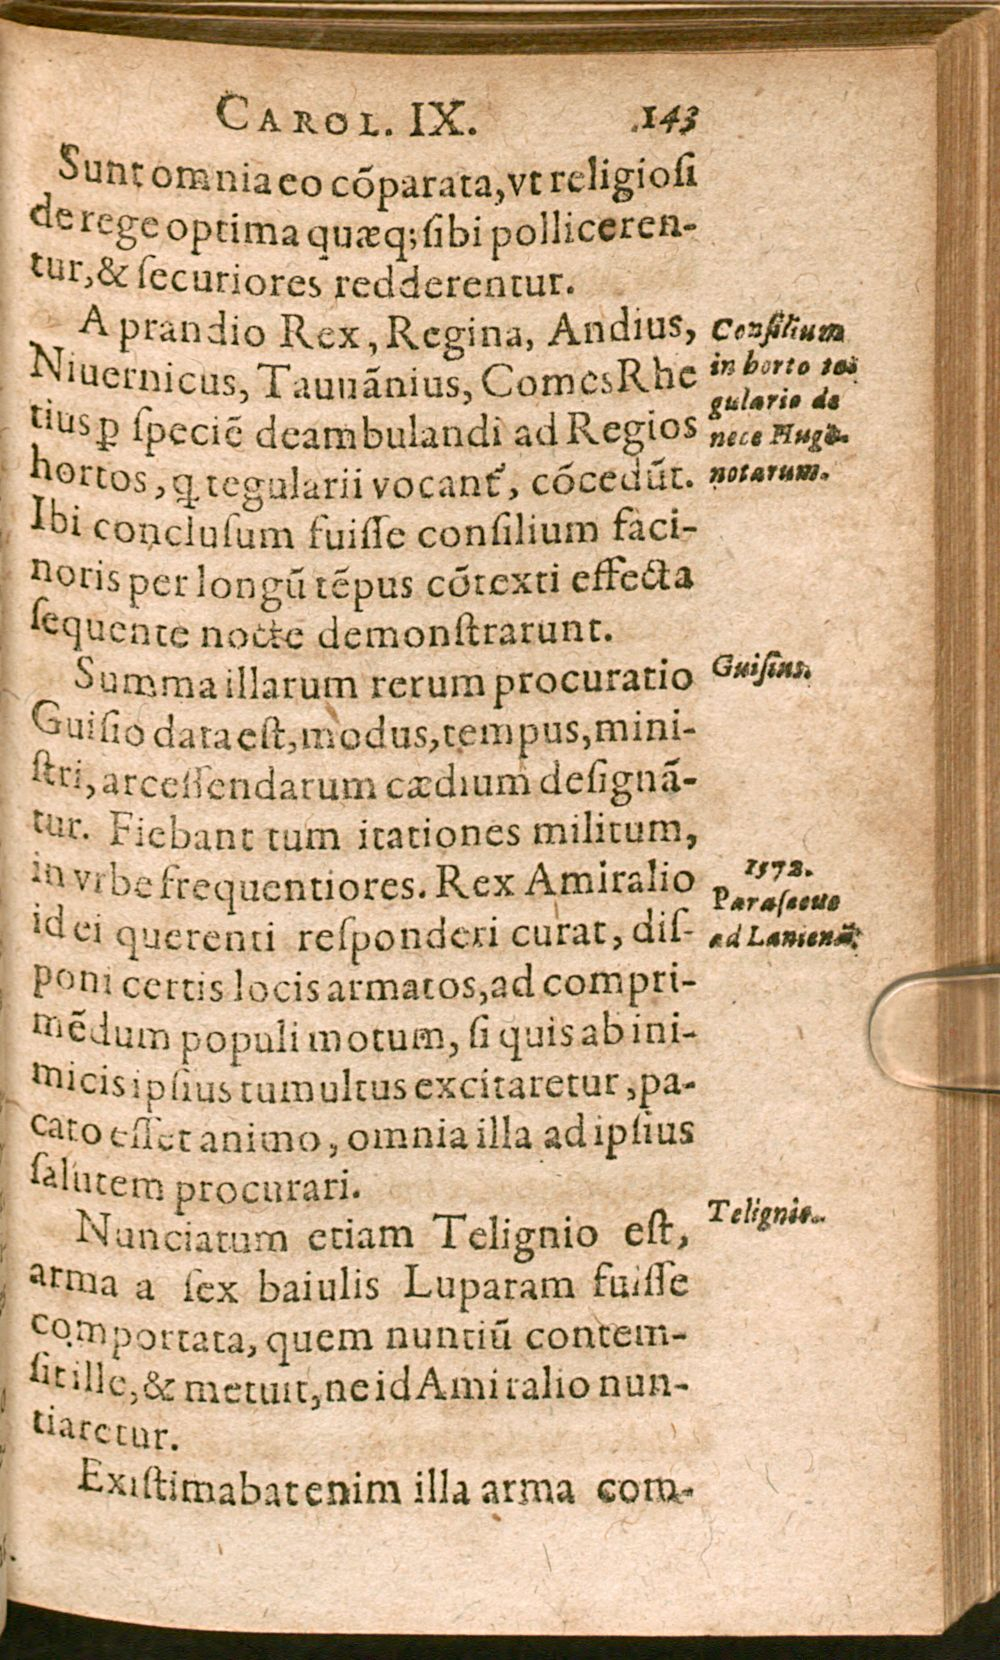 CAROL. IX. 143
Sunt omnia eo cõparata, vt religiosi
de rege optima quæq; sibi polliceren-
tur, & securiores redderentur.
A prandio Rex, Regina, Andius,
Niuernicus, Tauuãnius, Comes Rhe
tius ꝑ speciẽ deambulandi ad Regios
hortos, q tegularii vocant, cõcedũt.
Ibi conclusum fuisse consilium faci-
noris per longũ tẽpus cõtexti effecta
sequente nocte demonstrarunt.
Summa illarum rerum procuratio
Guisio data est, modus, tempus, mini-
stri, arcessendarum cædium designã-
tur. Fiebant tum itationes militum,
in vrbe frequentiores. Rex Amiralio
id ei querenti responderi curat, dis-
poni certis locis armatos, ad compri-
mẽdum populi motum, si quis ab ini-
micis ipsius tumultus excitaretur, pa-
cato esset animo, omnia illa ad ipsius
salutem procurari.
Nunciatum etiam Telignio est,
arma a sex baiulis Luparam fuisse
comportata, quem nuntiũ contem-
sit ille, & metuit, ne id Amiralio nun-
tiaretur.
Existimabat enim illa arma com-
Consilium
in horto te-
gulario de
nece Hugo-
notarum.
Guisius.
1572.
Parasceue
ad Lanienã.
Telignio.